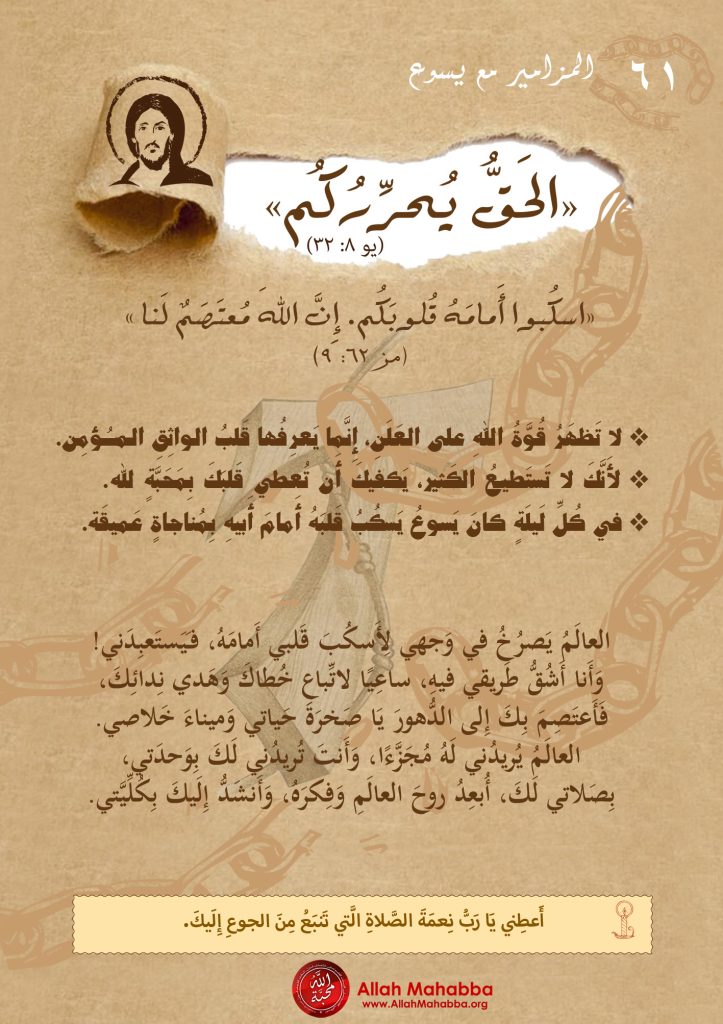 ٦١ المزامير مع يسوع
«الحَقُّ يُحرِّرُكُم»
(يو ٨: ٣٢)
«اسكُبوا أَمامَهُ قُلوبَكُم. إِنَّ اللهَ مُعتَصَمٌ لَنا»
(مز ٦٢: ٩)
❖ لا تَظهَرُ قُوَّةُ اللهِ على العَلَن، إِنَّما يَعرِفُها قَلبُ الواثِقِ المـُـؤمِن.
❖ لأَنَّكَ لا تَستَطيعُ الكَثير، يَكفيكَ أَن تُعطيَ قَلبَكَ بِمَحَبَّةٍ لله.
❖ في كُلِّ لَيلَةٍ كانَ يَسوعُ يَسكُبُ قَلبَهُ أَمامَ أَبيهِ بِمُناجاةٍ عَميقَة.
العالَمُ يَصرُخُ في وَجهي لِأَسكُبَ قَلبي أَمامَهُ، فيَستَعبِدَني!
وَأَنا أَشُقُّ طَريقي فيهِ، ساعِيًا لاتِّباعِ خُطاكَ وَهَدي نِدائِكَ،
فَأَعتَصِمَ بِكَ إِلى الدُّهورَ يَا صَخرَةَ حَياتي وَميناءَ خَلاصي.
العالَمُ يُريدُني لَهُ مُجَزَّءًا، وَأَنتَ تُريدُني لَكَ بِوَحدَتي،
بِصَلاتي لَكَ، أُبعِدُ روحَ العالَمِ وَفِكرَهُ، وَأَنشَدُّ إِلَيكَ بِكُلِّيَّتي.
أَعطِني يَا رَبُّ نِعمَةَ الصَّلاةِ الَّتي تَنبَعُ مِنَ الجوعِ إِلَيكَ.
اللّٰه محبّة
Allah Mahabba
www.AllahMahabba.org